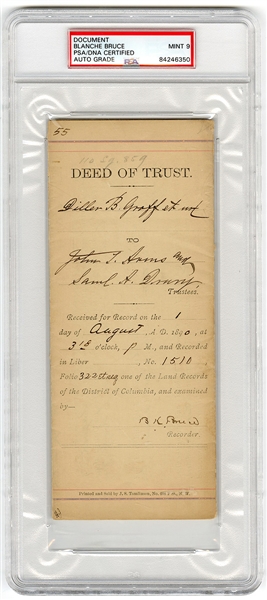 DOCUMENT
BLANCHE BRUCE
PSA/DNA CERTIFIED
AUTO GRADE
MINT 9
PSA
84246350
55
DEED OF TRUST.
Diller B. Groff et ux
TO
John T. Arms and
Saml A. Drury
Trustees.
Received for Record on the 1
day of August A. D. 1890, at
3 15 o'clock, P M., and Recorded
in Liber No. 1510
Folio 322 et seq one of the Land Records
of the District of Columbia, and examined
by—
B K Bruce
Recorder.
Printed and sold by J. S. Tomlinson, No.